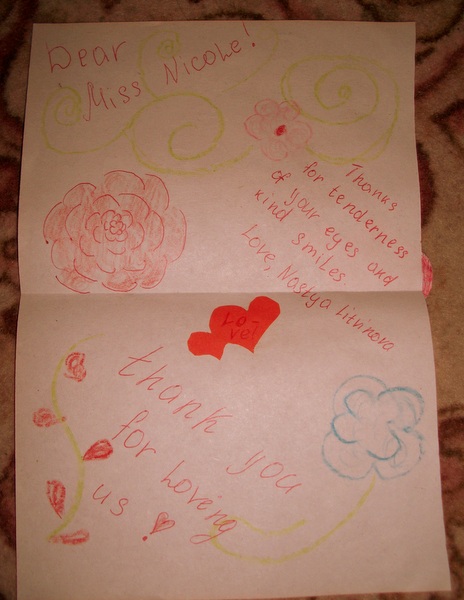 Dear
Miss Nicole!
Thanks
for tenderness
of your eyes and
kind smiles
Love, Nastya Litvinova
Lo-
ve!
thank you
for Loving
us!